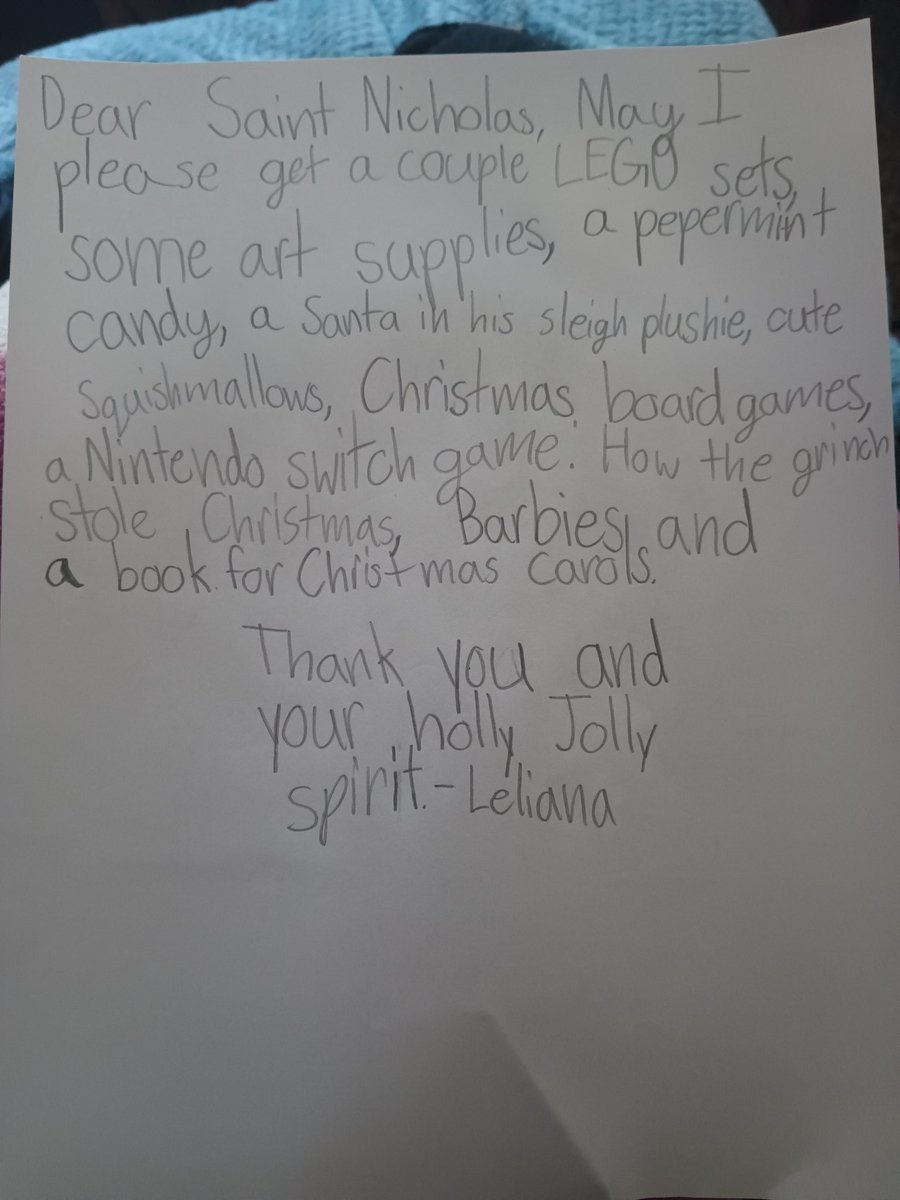 Dear Saint Nicholas, May I
please get a couple LEGO sets,
some art supplies, a pepermint
candy, a Santa in his sleigh plushie, cute
Squishmallows, Christmas board games,
a Nintendo switch game: How the grinch
Stole Christmas, Barbies, and
a book for Christmas carols.
Thank you and
your holly Jolly
spirit.-Leliana